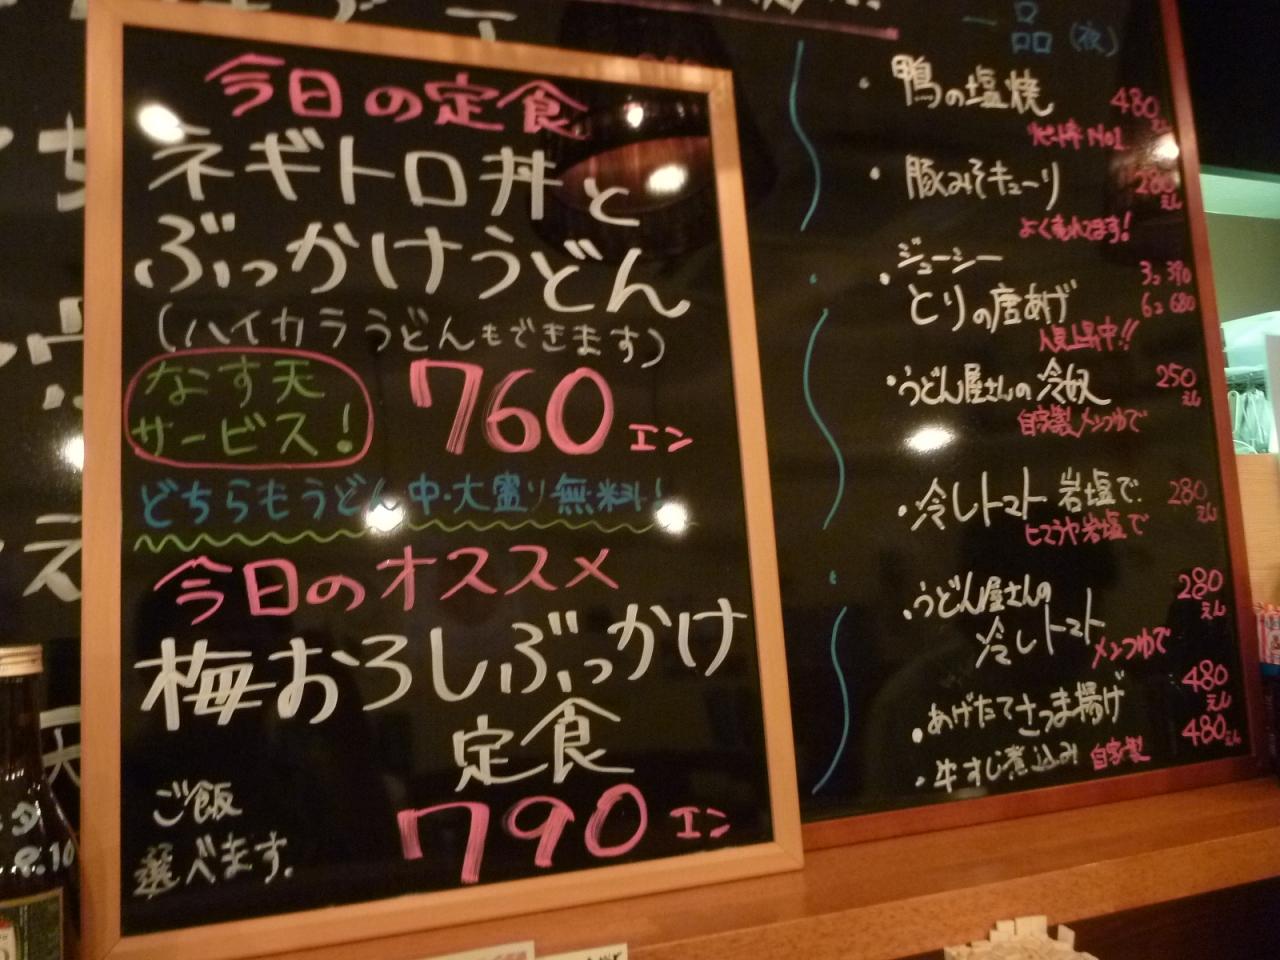 今日の定食
ネギトロ丼と
ぶっかけうどん
(ハイカラうどんもできます)
なす天
サービス!
760エン
どちらもうどん中・大盛り無料!
今日のオススメ
梅おろしぶっかけ
定食
ご飯
選べます。
790エン
一品(夜)
・鴨の塩焼 480えん
リピート率No1
・豚みそキューリ 280えん
よく売れてます!
・ジューシー
とりの唐あげ 3コ390
6コ680
人気上昇中!!
・うどん屋さんの冷奴 250えん
自家製メンつゆで
・冷しトマト岩塩で 280えん
ヒマラヤ岩塩で
・うどん屋さんの 280えん
冷しトマト メンつゆで
・あげたてさつま揚げ 480えん
・牛すじ煮込み 自家製 480えん